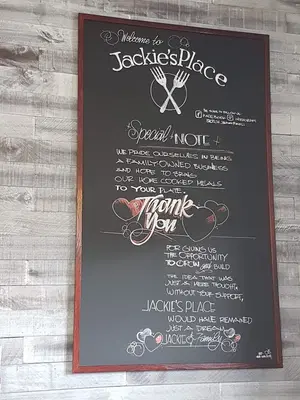 Welcome to
Jackie's Place
FACEBOOK
INSTAGRAM
Special NOTE
WE PRIDE OURSELVES IN BEING
A FAMILY OWNED BUSINESS
AND HOPE TO BRING
OUR HOME COOKED MEALS
TO YOUR PLATE
Thank
You
FOR GIVING US
THE OPPORTUNITY
TO GROW and BUILD
THE IDEA THAT WAS
JUST A MERE THOUGHT.
WITHOUT YOUR SUPPORT,
JACKIE'S PLACE
WOULD HAVE REMAINED
JUST A DREAM
JACKIE & Family